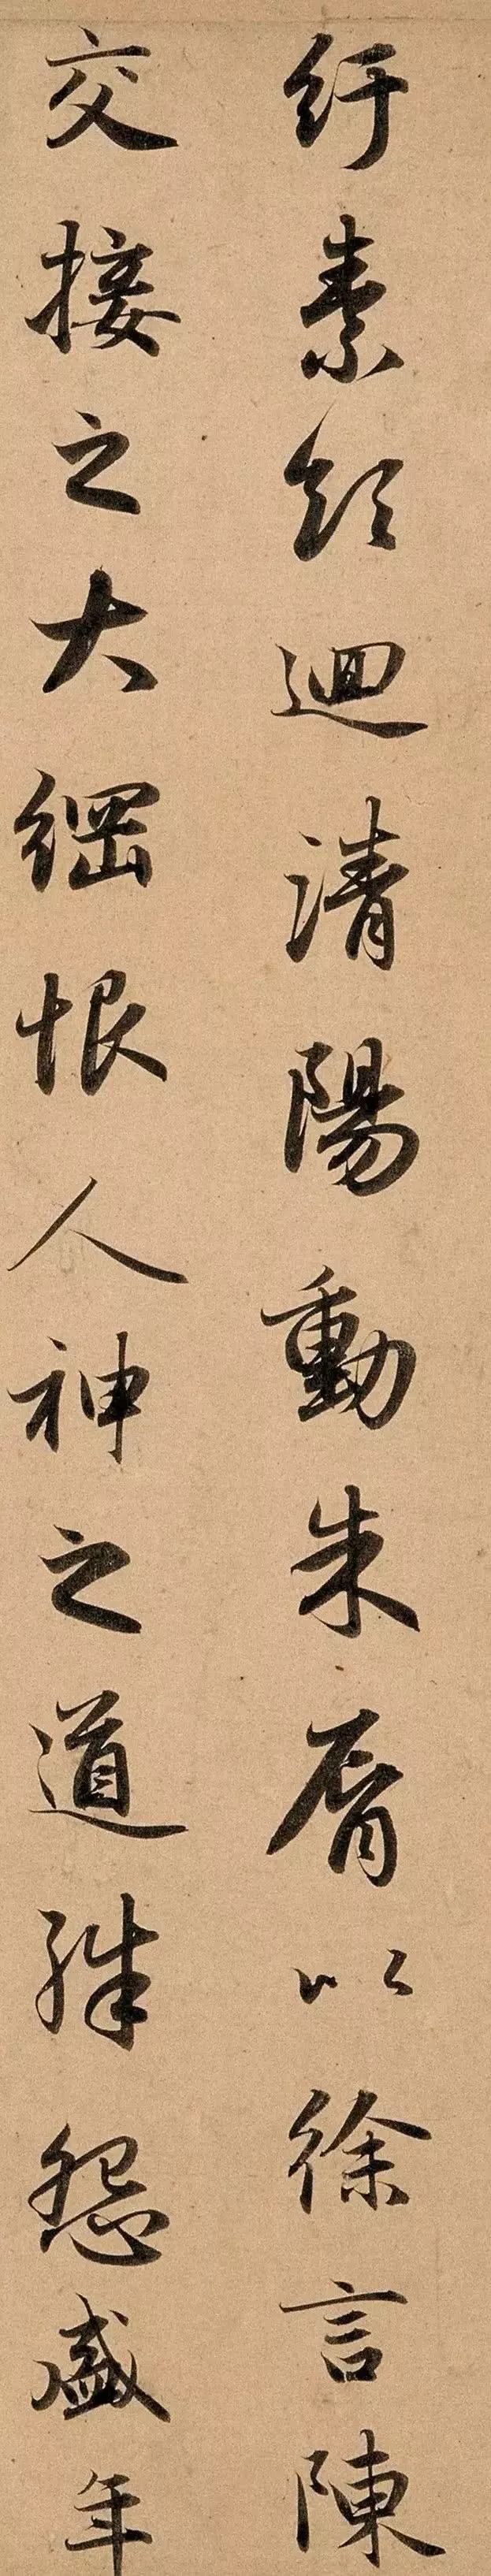 紆素領迴清陽動朱脣以徐言陳
交接之大綱恨人神之道殊怨盛年